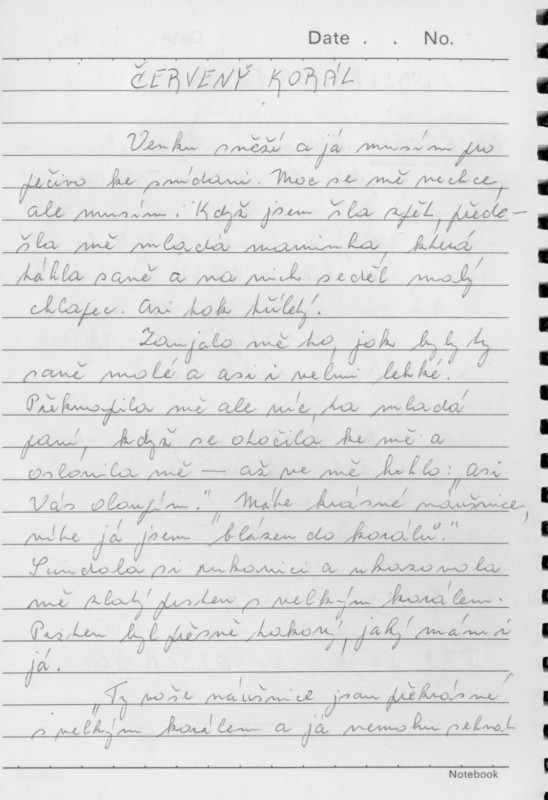 Date . . No.
ČERVENÝ KORÁL
Venku sněží a já musím pro
pečivo ke snídani. Moc se mě nechce,
ale musím. Když jsem šla zpět, přede-
šla mě mladá maminka, která
táhla saně a na nich seděl malý
chlapec. Asi tak tříletý.
Zaujalo mě to, jak byly ty
saně malé a asi i velmi lehké.
Překvapila mě ale víc, ta mladá
paní, když se otočila ke mě a
oslovila mě – až ve mě hrklo: "asi
Vás oloupím." "Máte krásné náušnice,
víte já jsem "blázen do korálů."
Sundala si rukavici a ukazovala
mě zlatý prsten s velkým korálem.
Prsten byl přesně takový, jaký mám i
já.
"Ty vaše náušnice jsou překrásné
s velkým korálem a já nemohu sehnat
Notebook